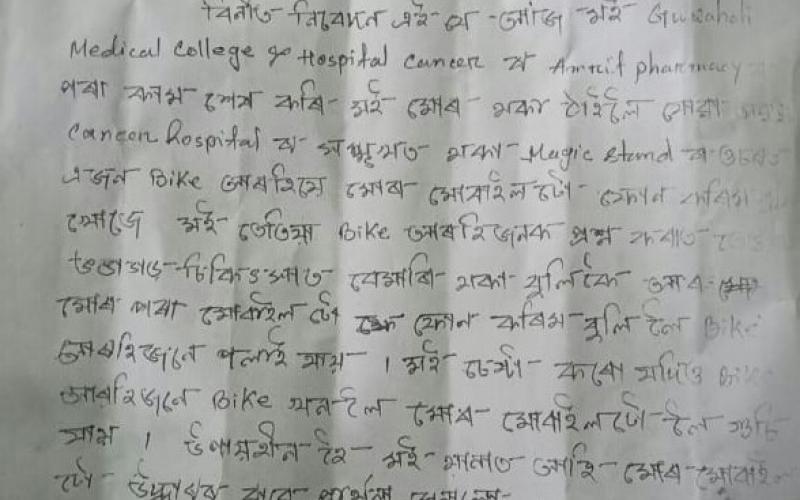 বিনীত নিবেদন এই যে আজি মই Guwahati
Medical College & Hospital Cancer ৰ Amrit pharmacy
পৰা কাম শেষ কৰি মই মোৰ থকা ঠাইলৈ যোৱা
Cancer hospital ৰ সন্মুখত থকা Magic Stand ৰ ওচৰত
এজন Bike আৰোহিয়ে মোৰ মোবাইলটো ফোন কৰিম
খোজে মই তেতিয়া Bike আৰোহিজনক প্ৰশ্ন কৰাত
চিকিৎসাত বেমাৰি থকা বুলিকৈ
মোৰ পৰা মোবাইল টো ফোন কৰিম বুলি লৈ Bike
আৰোহিজনে পলাই যায় । মই চেষ্টা কৰো যদিও Bike
আৰোহিজনে Bike খনলৈ মোৰ মোবাইলটো লৈ গুচি
যায় । উপায়হীন হৈ মই থানাত আহি মোৰ মোবাইল
টো উদ্ধাৰৰ বাবে